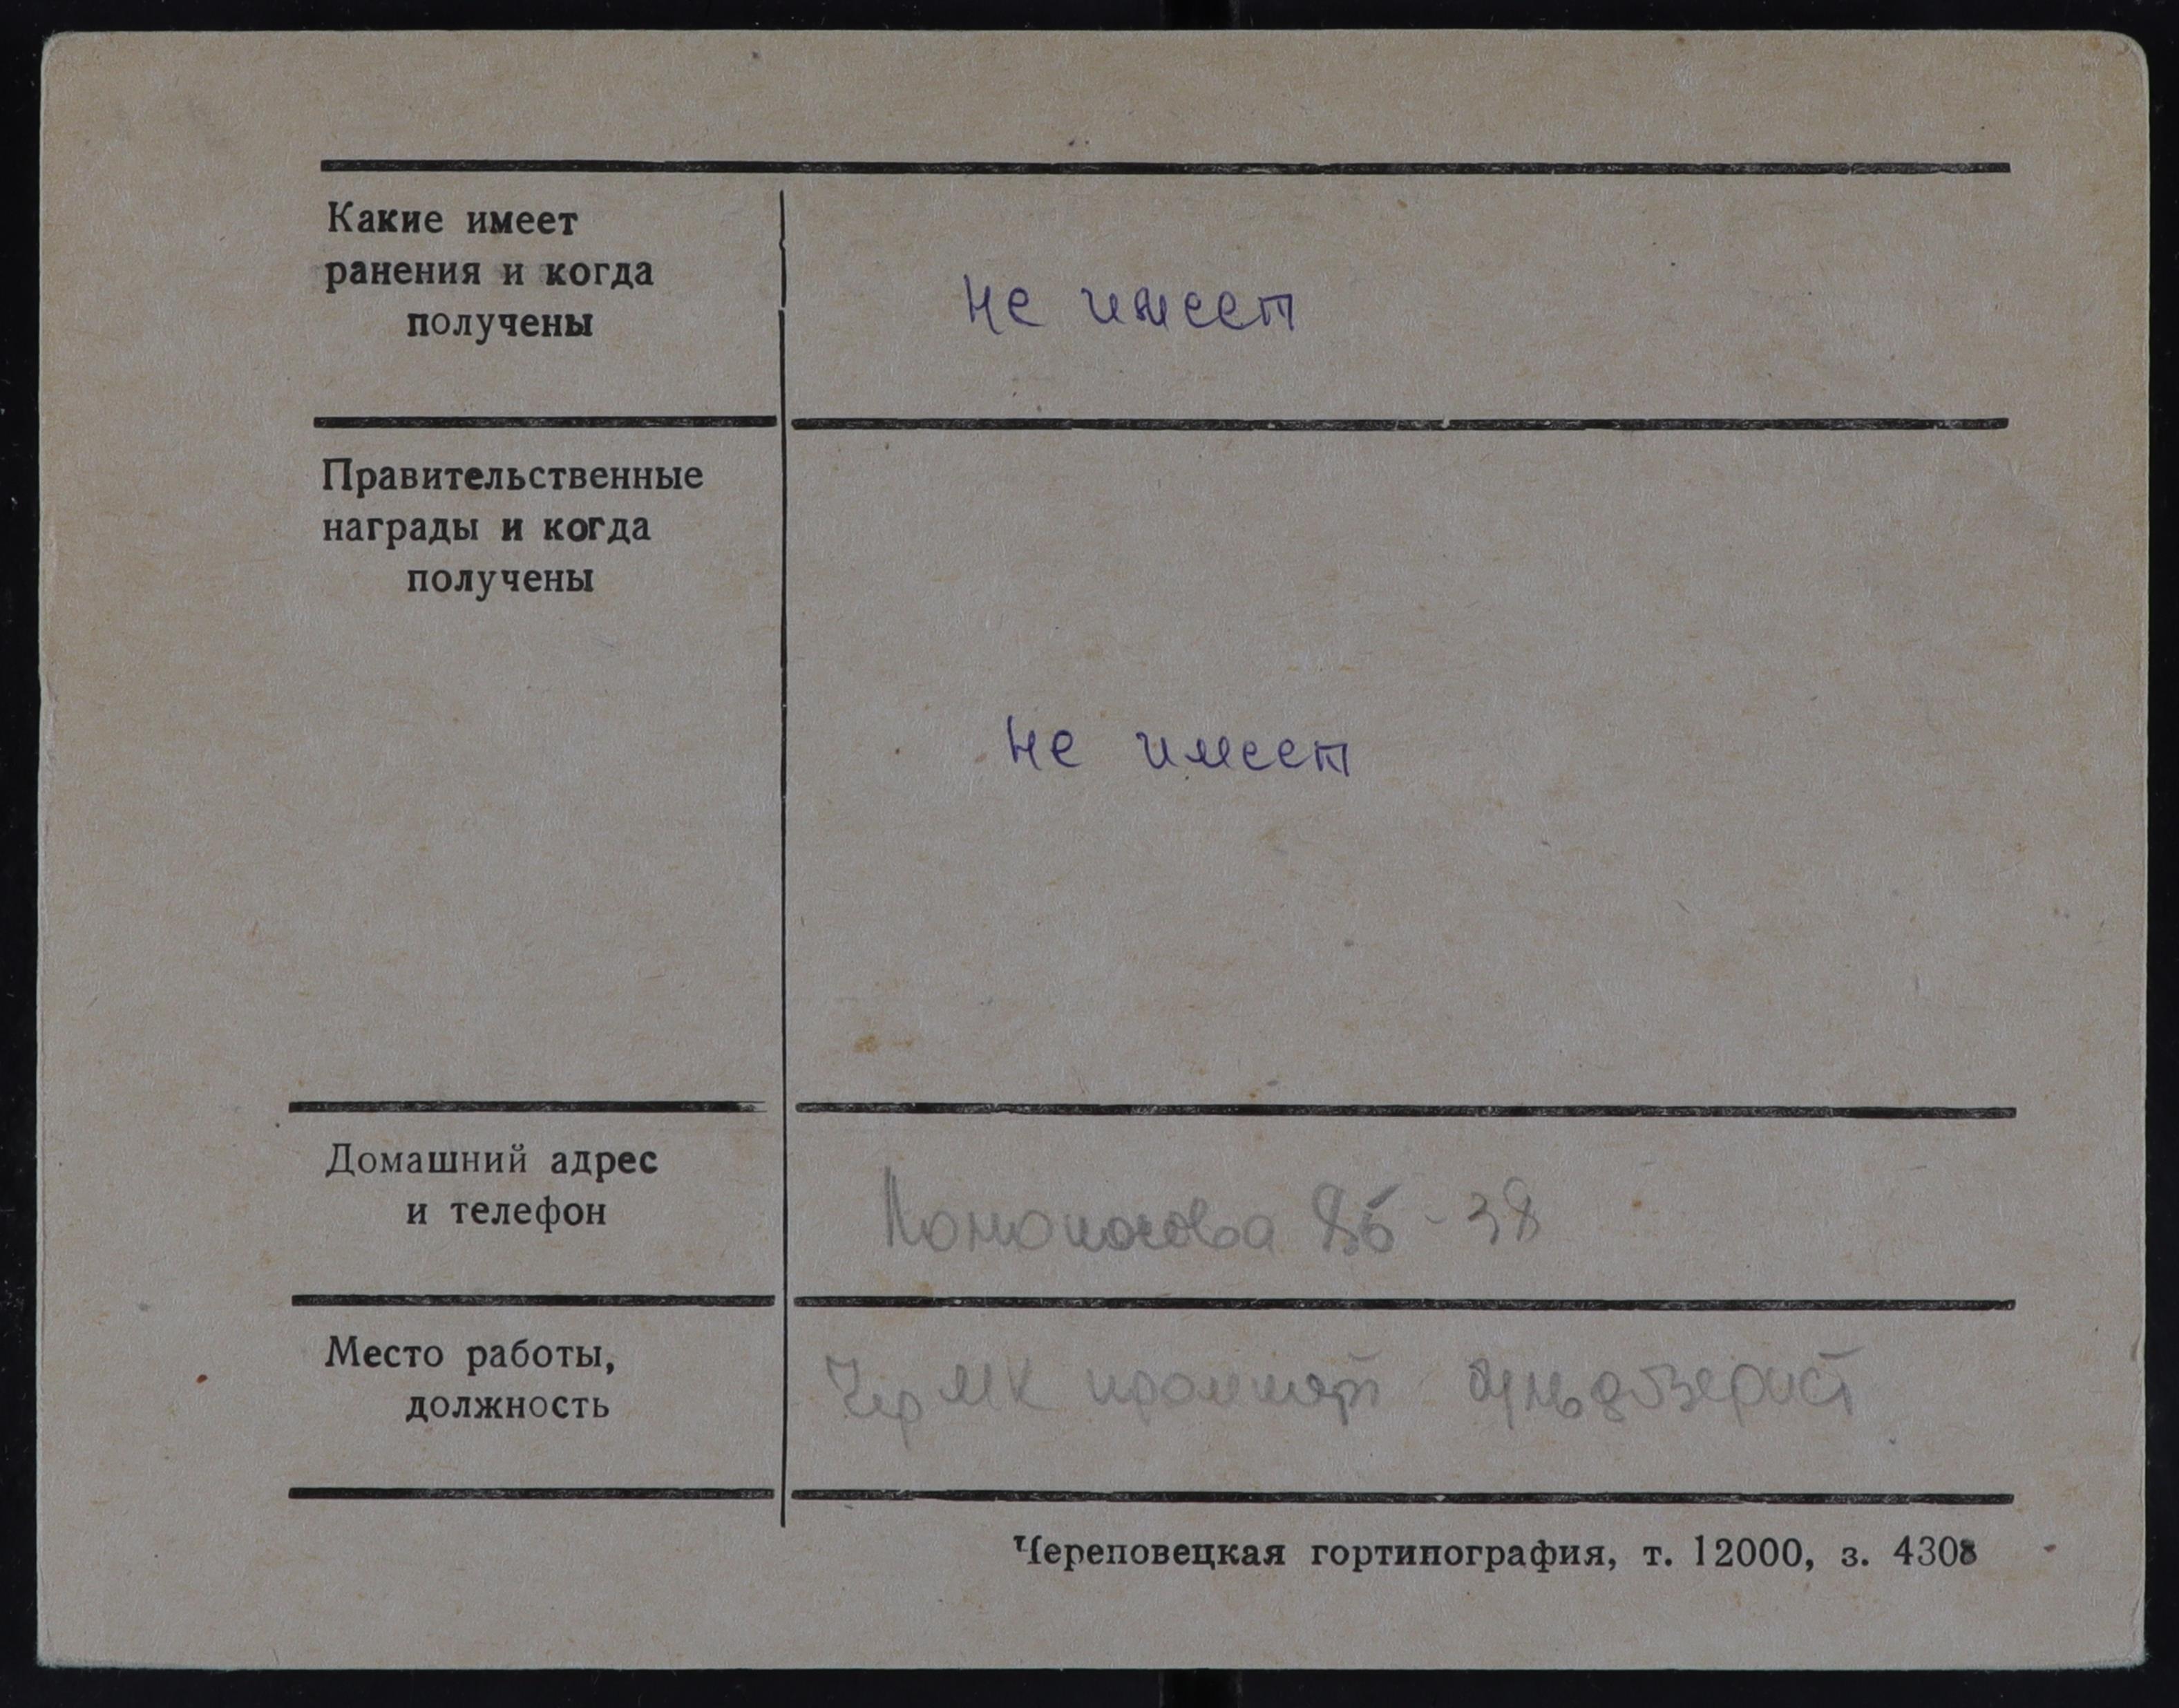 Какие имеет
ранения и когда
получены
не имеет
Правительственные
награды и когда
получены
не имеет
Домашний адрес
и телефон
Ломоносова 35-38
Место работы,
должность
ЧерМК бульдозерист
Череповецкая гортипография, т. 12000, з. 4308